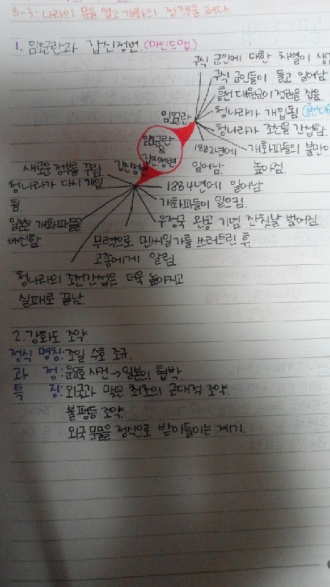 3-3: 나라의 문을 열고 개화의 정책을 펴다
1. 임오군란과 갑신정변 (마인드맵)
구식 군인에 대한 차별이 생
구식 군인들이 들고 일어남
흥선 대원군이 정권을 잡음
임오군란
청나라가 개입됨
청나라가 조선을 간섭함
1882년에 일어남
개화파들의 불만이 높아짐
임오군란 & 갑신정변
갑신정변
새로운 정부를 꾸밈
청나라가 다시 개입됨
일본 개화파들 배신함
1884년에 일어남
개화파들이 일으킴
우정국 완공 기념 잔칫날 벌어짐
무력으로 민씨일가를 쓰러트린 후 고종에게 알림
청나라의 조선간섭은 더욱 높아지고 실패로 끝남
2. 강화도 조약
정식 명칭: 조일 수호 조규
과 정: 운요호 사건 → 일본의 협박
특 징: 외국과 맺은 최초의 근대적 조약
불평등 조약
외국 문물을 정식으로 받아들이는 계기